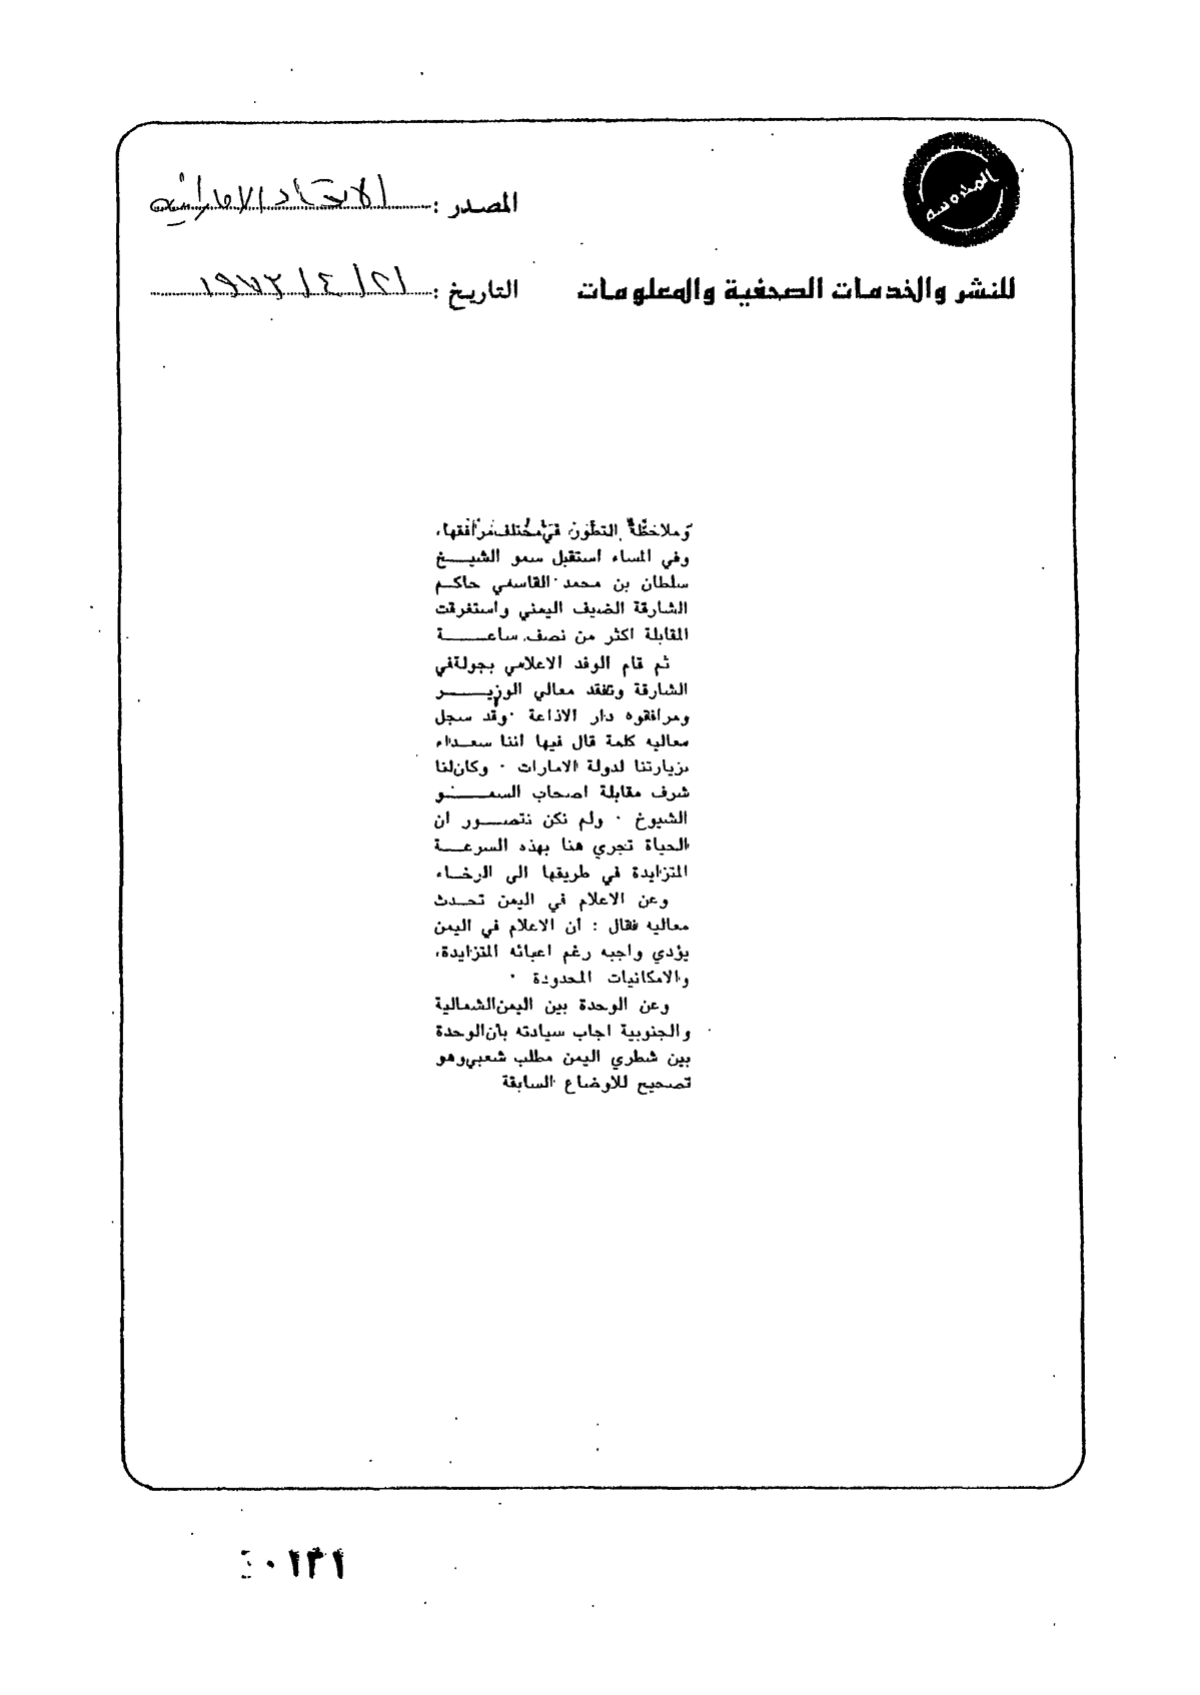 المدروسه
المصدر : الاتحاد الاماراتيه
للنشر والخدمات الصحفية والمعلومات
التاريخ : ٢١ / ٤ / ١٩٧٣
وملاحظة التطور في مختلف مرافقها،
وفي المساء استقبل سمو الشيخ
سلطان بن محمد القاسمي حاكم
الشارقة الضيف اليمني واستغرقت
المقابلة اكثر من نصف ساعة
ثم قام الوفد الاعلامي بجولة في
الشارقة وتفقد معالي الوزير
ومرافقوه دار الاذاعة . وقد سجل
معاليه كلمة قال فيها اننا سعداء
بزيارتنا لدولة الامارات . وكان لنا
شرف مقابلة اصحاب السمو
الشيوخ . ولم نكن نتصور ان
الحياة تجري هنا بهذه السرعة
المتزايدة في طريقها الى الرخاء
وعن الاعلام في اليمن تحدث
معاليه فقال : ان الاعلام في اليمن
يؤدي واجبه رغم اعبائه المتزايدة،
والامكانيات المحدودة .
وعن الوحدة بين اليمن الشمالية
والجنوبية اجاب سيادته بأن الوحدة
بين شطري اليمن مطلب شعبي وهو
تصحيح للاوضاع السابقة